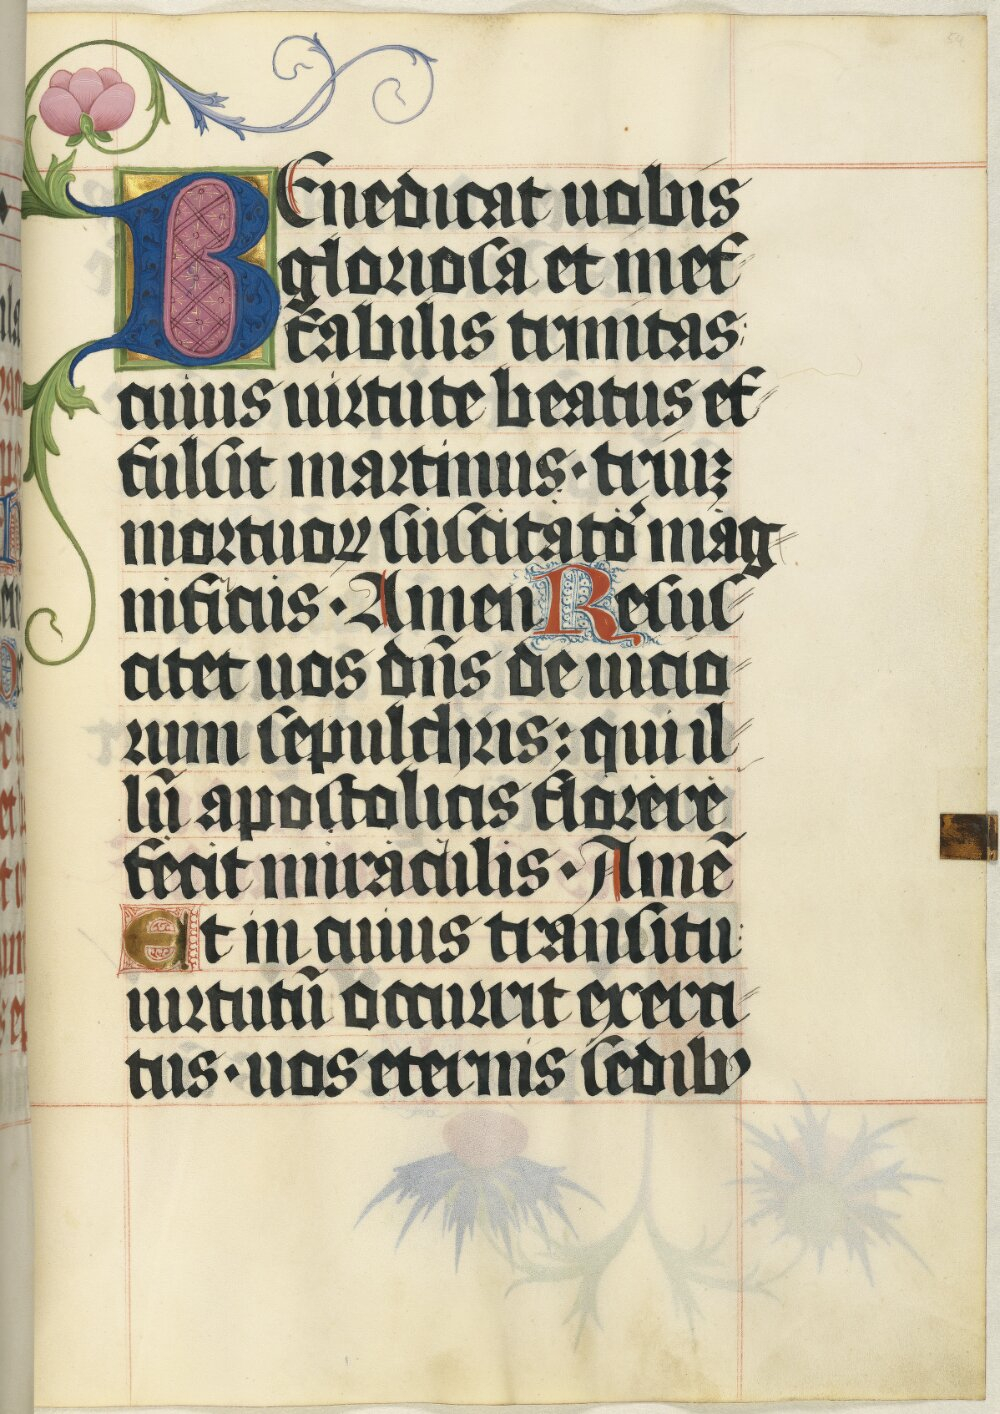 BEnedicat uobis
gloriosa et inef
fabilis trinitas:
cuius uirtute beatus ef
fulsit martinus· triuʒ
mortuoꝝ suscitatō mag
nificus· Amen Resus
citet uos dn̄s de uicio
rum sepulchris: qui il
lū apostolicis florere
fecit miraculis· Amē
Et in cuius transitu:
uirtutū occurrit exerci
tus· uos eternis sedibꝰ
54